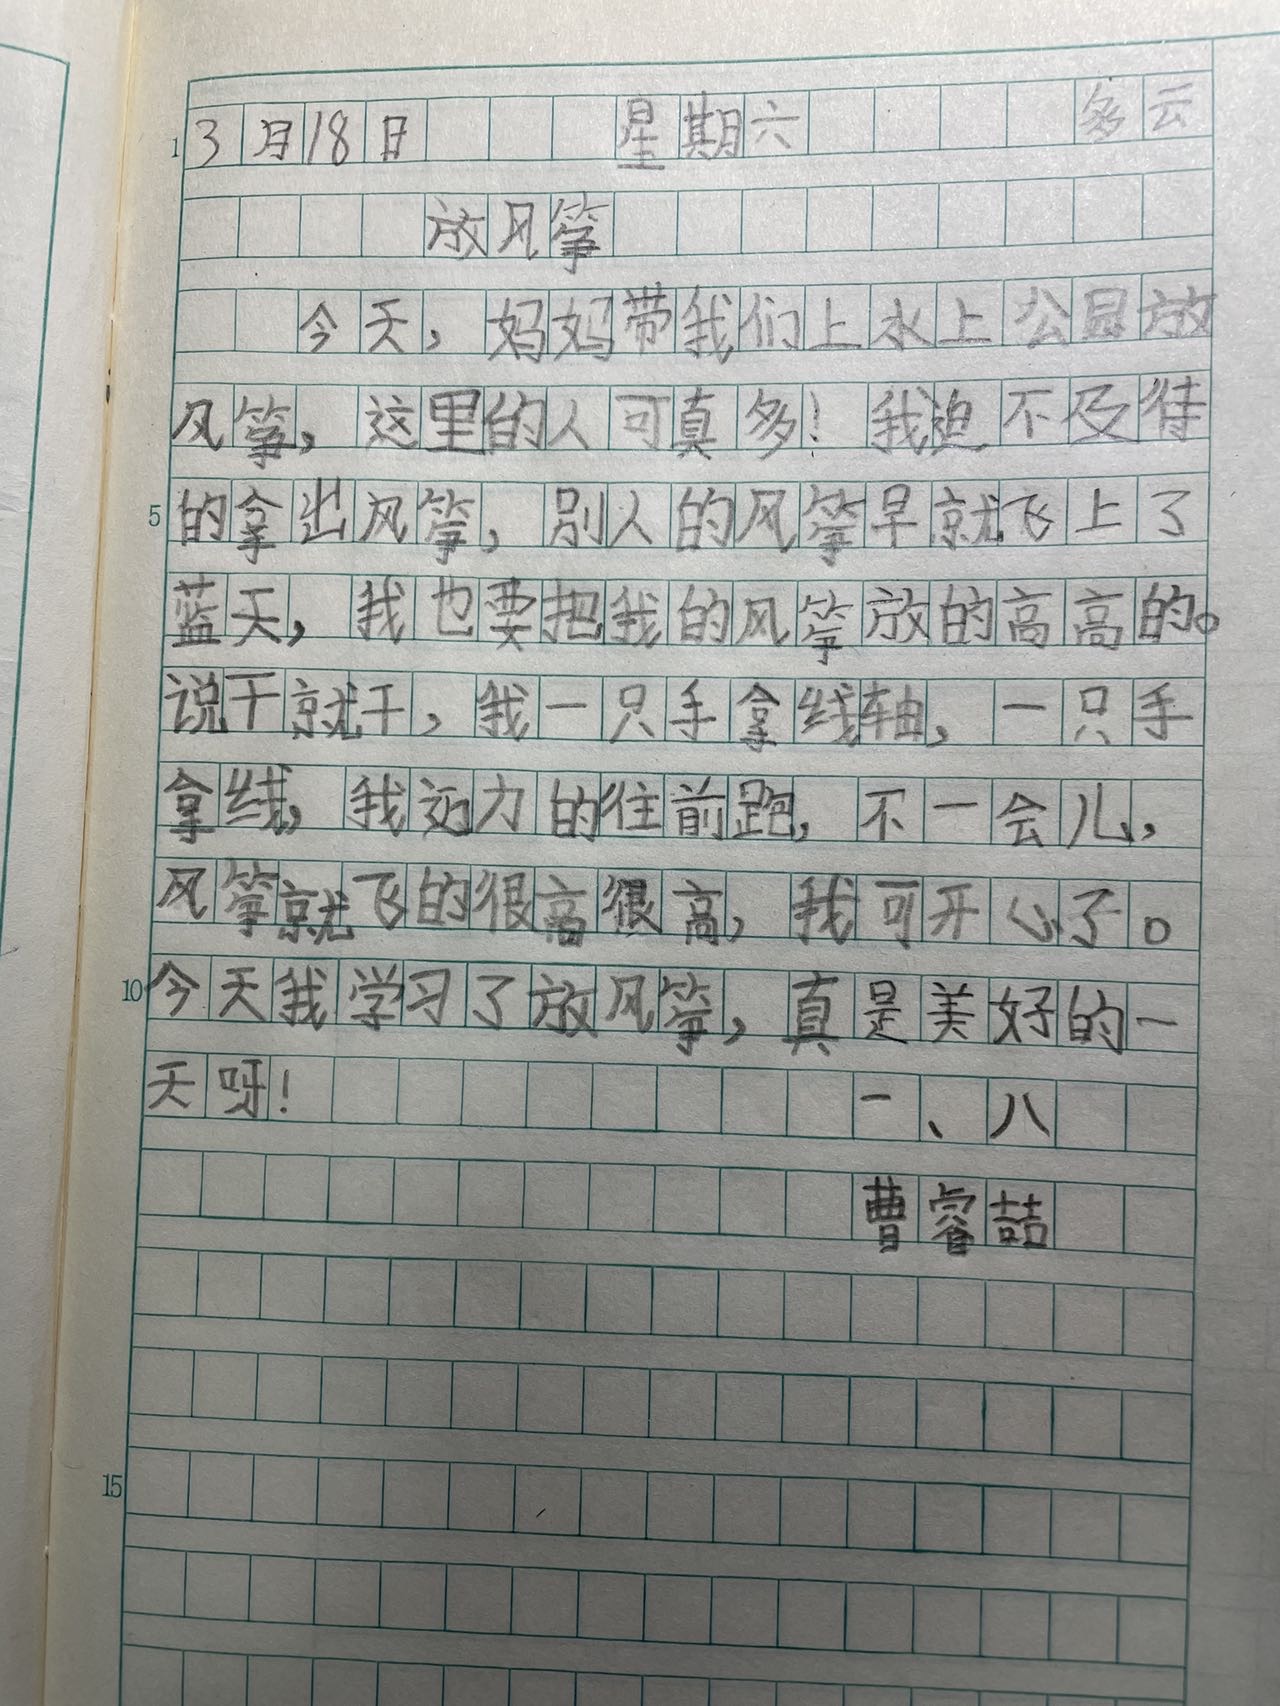 3月18日 星期六 多云
放风筝
今天，妈妈带我们上水上公园放
风筝，这里的人可真多！我迫不及待
的拿出风筝，别人的风筝早就飞上了
蓝天，我也要把我的风筝放的高高的。
说干就干，我一只手拿线轴，一只手
拿线，我 力的往前跑，不一会儿，
风筝就飞的很高很高，我可开心了。
今天我学习了放风筝，真是美好的一
天呀！ 一、八
曹睿喆
1
5
10
15